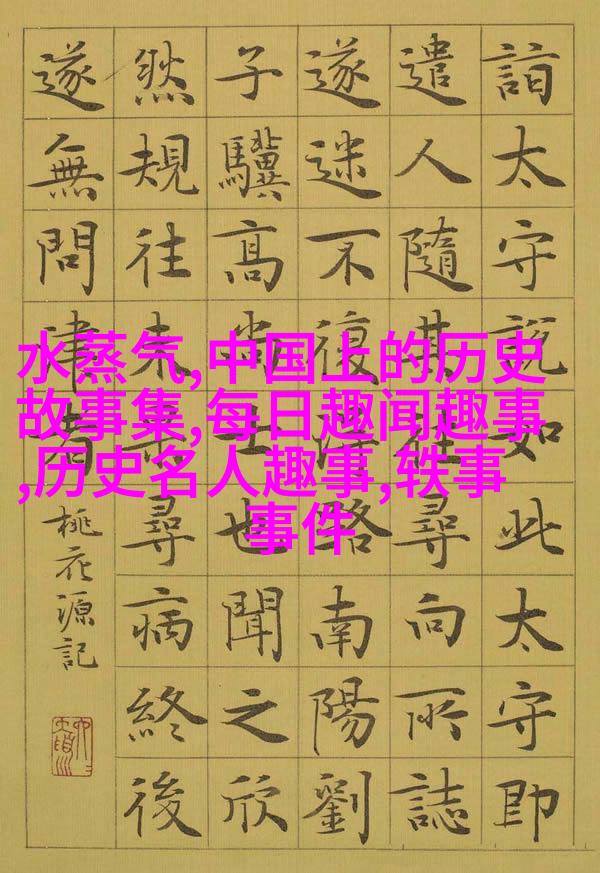 詣太守說如此太守即
遣人隨其往尋向所誌
遂迷不復得路南陽劉
子驥高尚士也聞之欣
然規往未果尋病終後
遂無問津者
桃花源記
水蒸气,中国上的历史
故事集,每日趣闻趣事
,历史名人趣事,轶事
事件